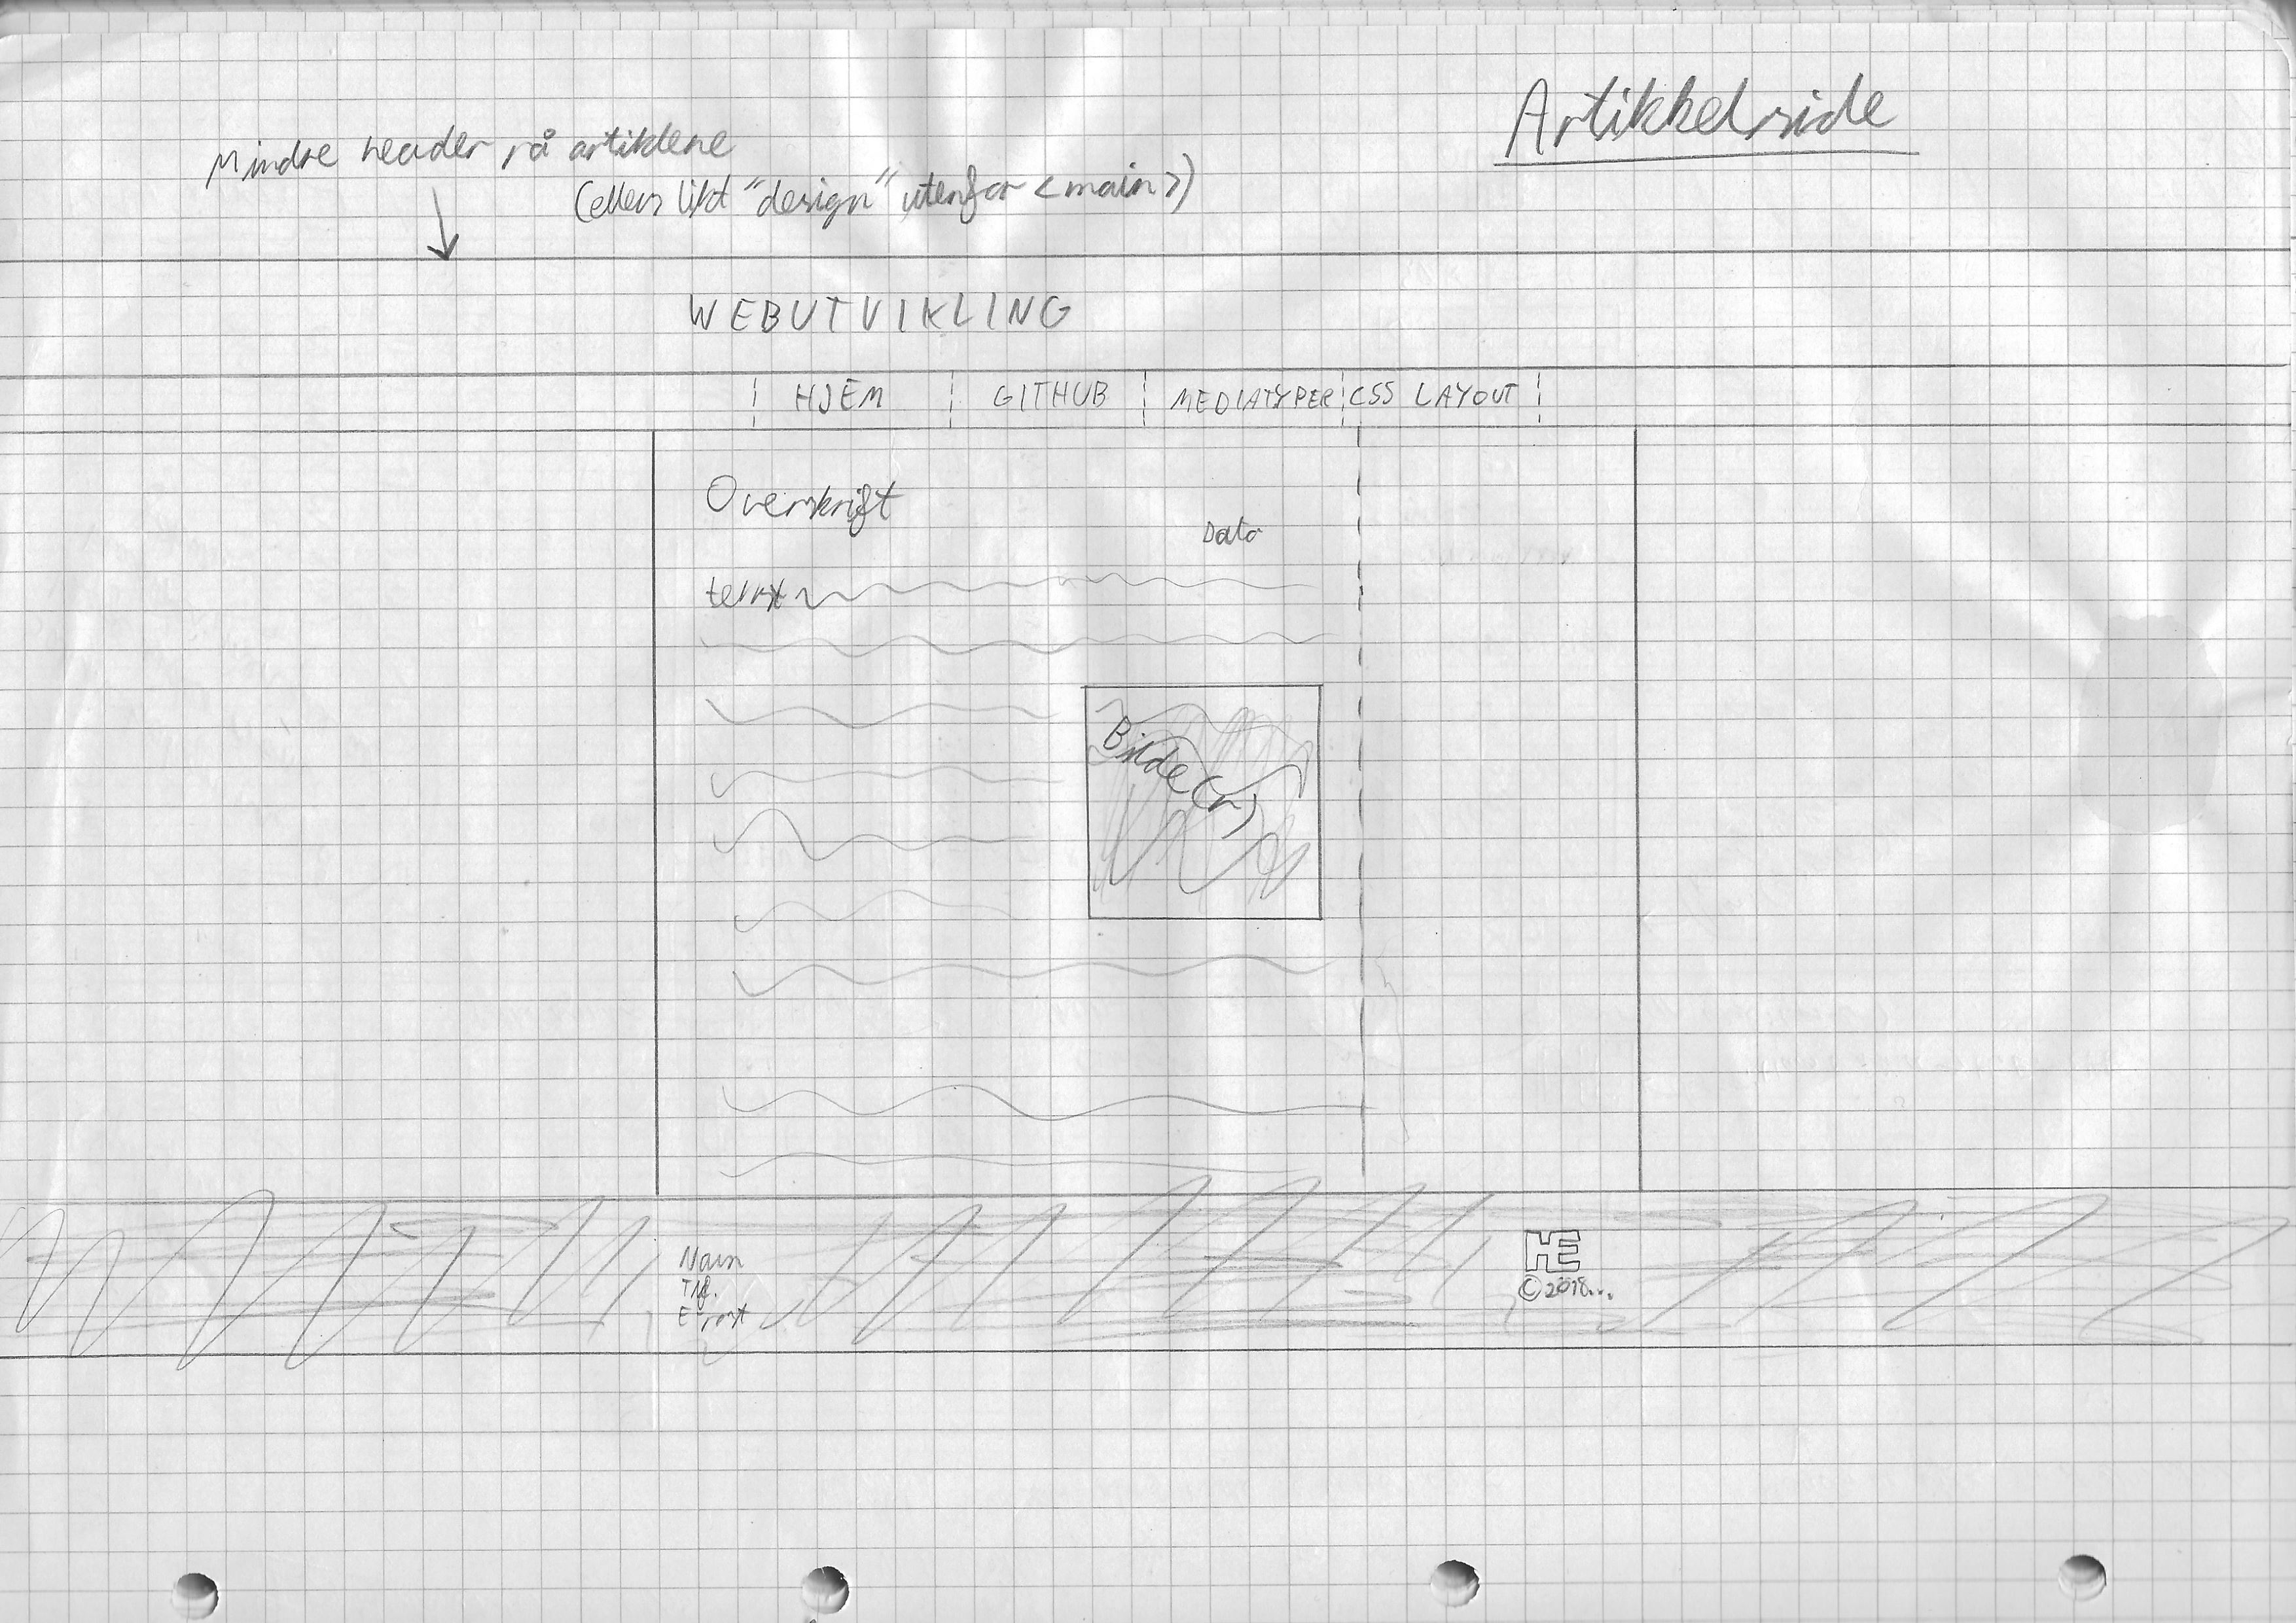 Artikkelside
Mindre header på artiklene
(ellers likt "design" utenfor <main>)
WEBUTVIKLING
HJEM GITHUB MEDIATYPER CSS LAYOUT
Overskrift
Dato
tekst
Bilde(r)
Navn
Tlf.
E-post
HE
©2018...